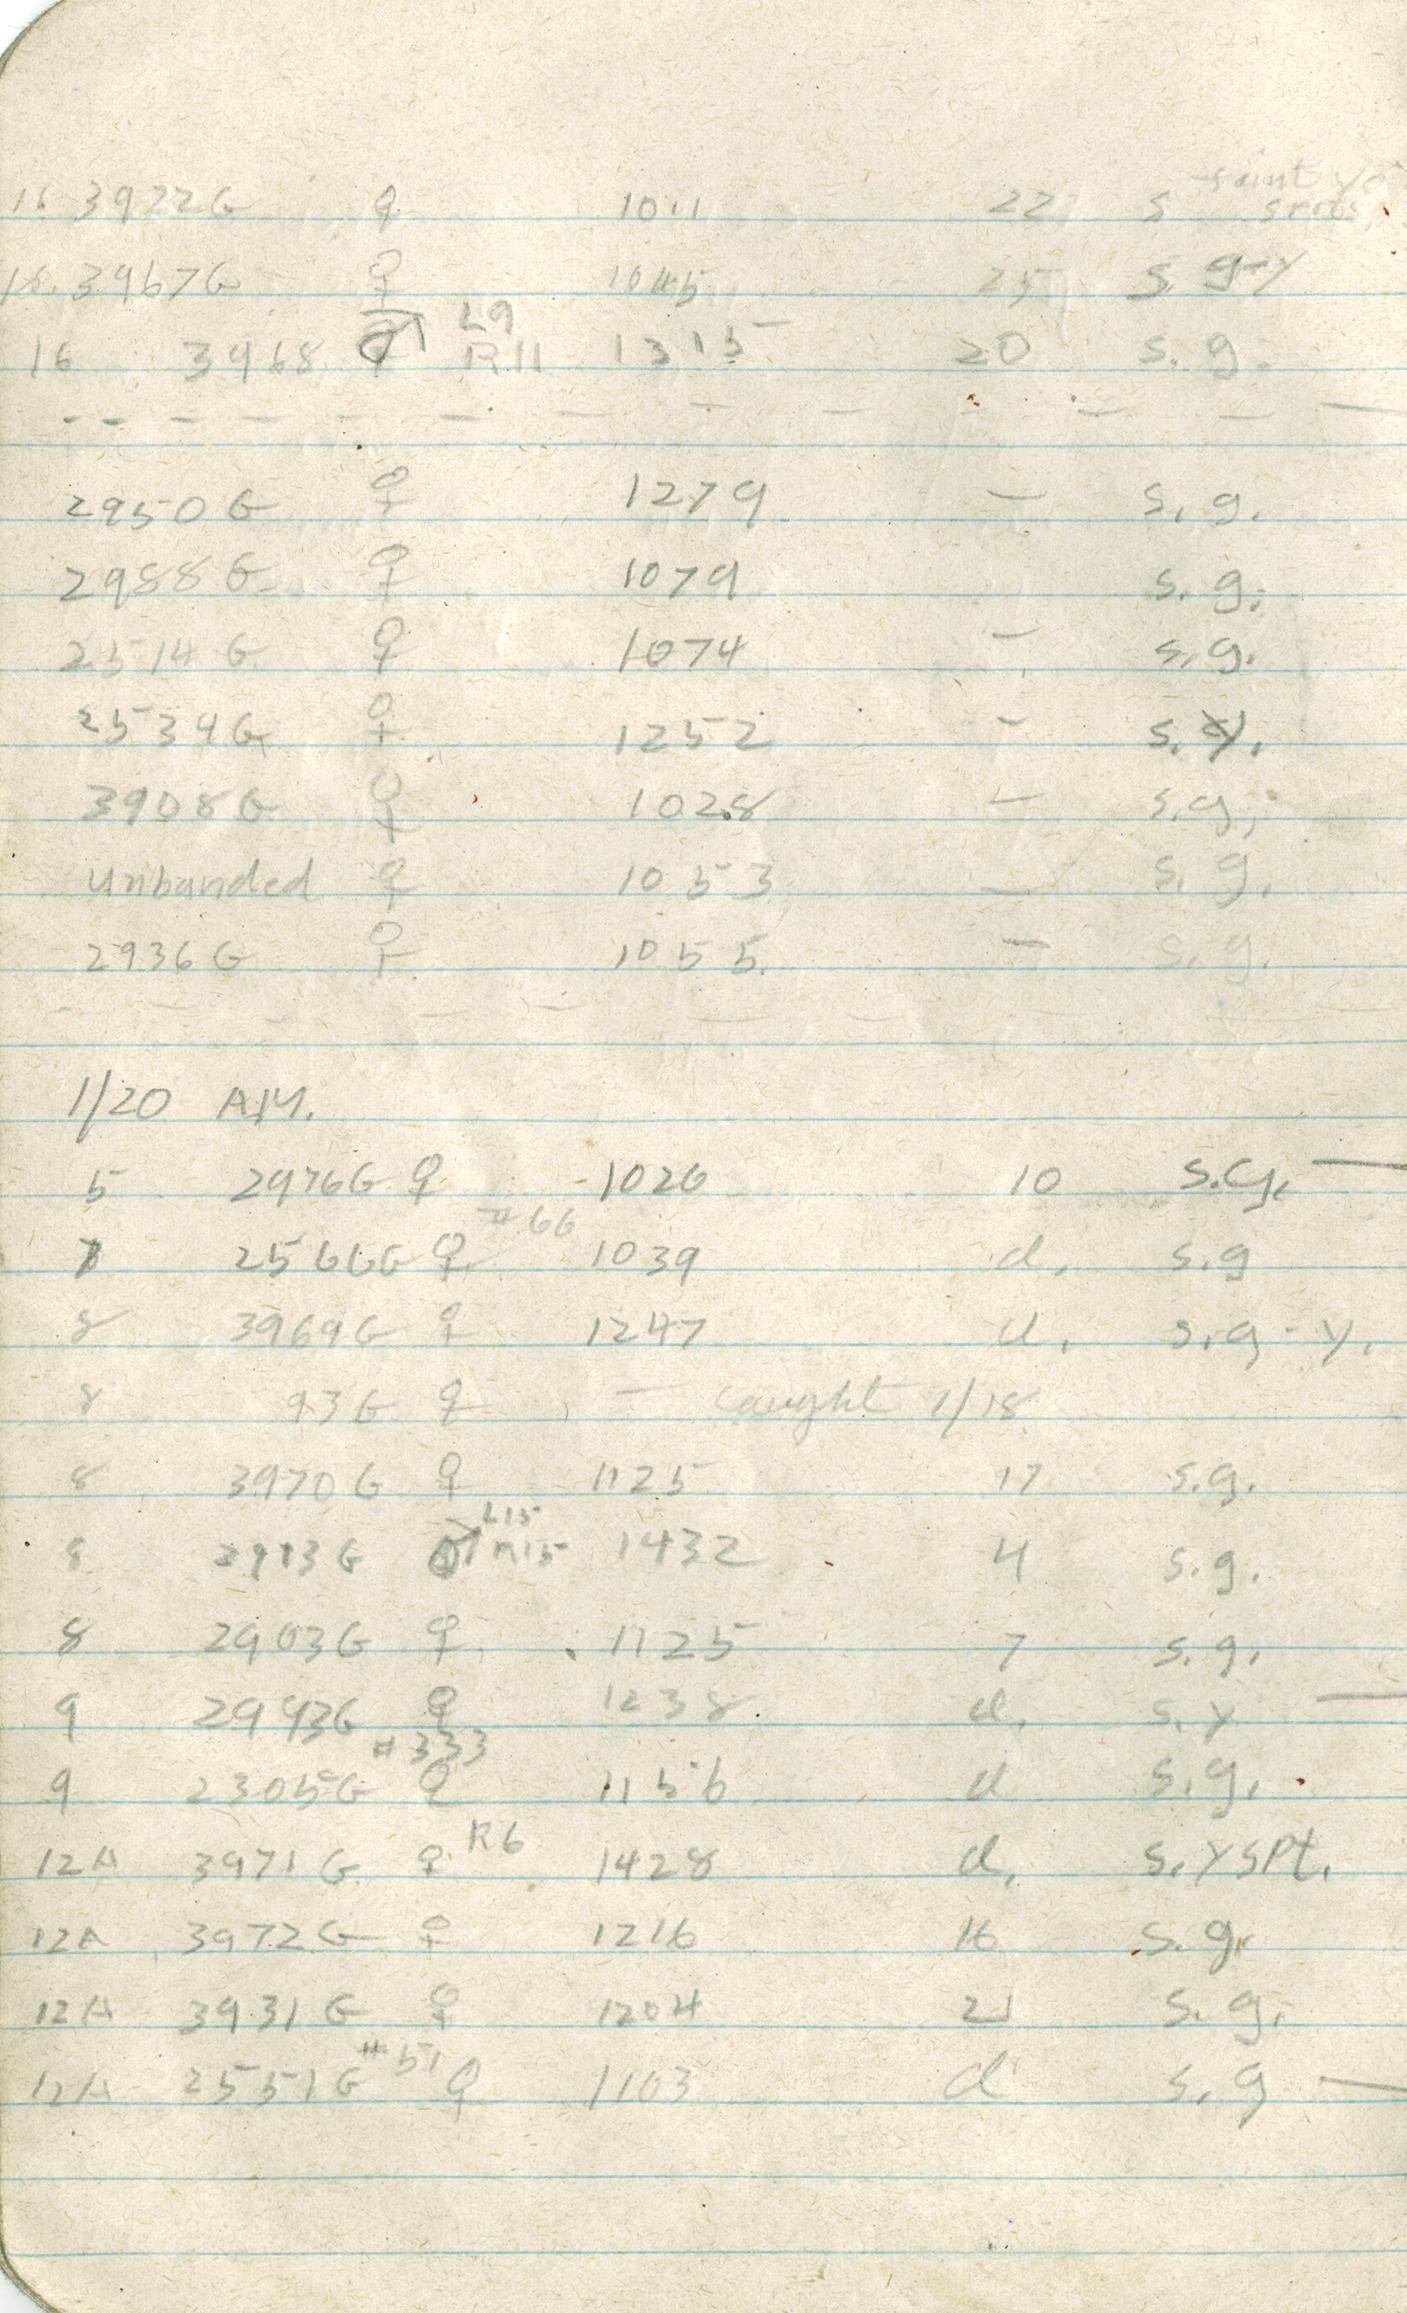 16 3922G ♀ 1011 22 s - faint
16 3967G ♀ 1045 25 s. g-y
16 3968 ♂ L9 R11 1315 20 s. g.
-- - - - - - - - - - - -
2950G ♀ 1279 — s. g.
2988G ♀ 1079 s. g.
2514G ♀ 1074 - s.g.
2534G ♀ 1252 - s. y.
3908G ♀ 1028 - s.g.
unbanded ♀ 1053 - s. g.
2936G ♀ 1055 - s. g.
- - - - - - - - -
1/20 A.M.
5 2976G ♀ 1026 10 s.g. —
7 2566G ♀ #66 1039 d. s.g
8 3969G ♀ 1247 d. s.g-y.
8 93G ♀ — caught 1/18
8 3970G ♀ 1125 17 s.g.
8 2913G ♂ L15 R15 1432 4 s.g.
8 2903G ♀ 1125 7 s.g.
9 2943G ♀ 1238 d. s.y —
9 2305G #333 ♀ 1156 d s.g.
12A 3971G ♀ R6 1428 d. s.y spt.
12A 3972G ♀ 1216 16 s.g.
12A 3931G ♀ 1204 21 s.g.
12A 2551G #51 ♀ 1103 d s.g —